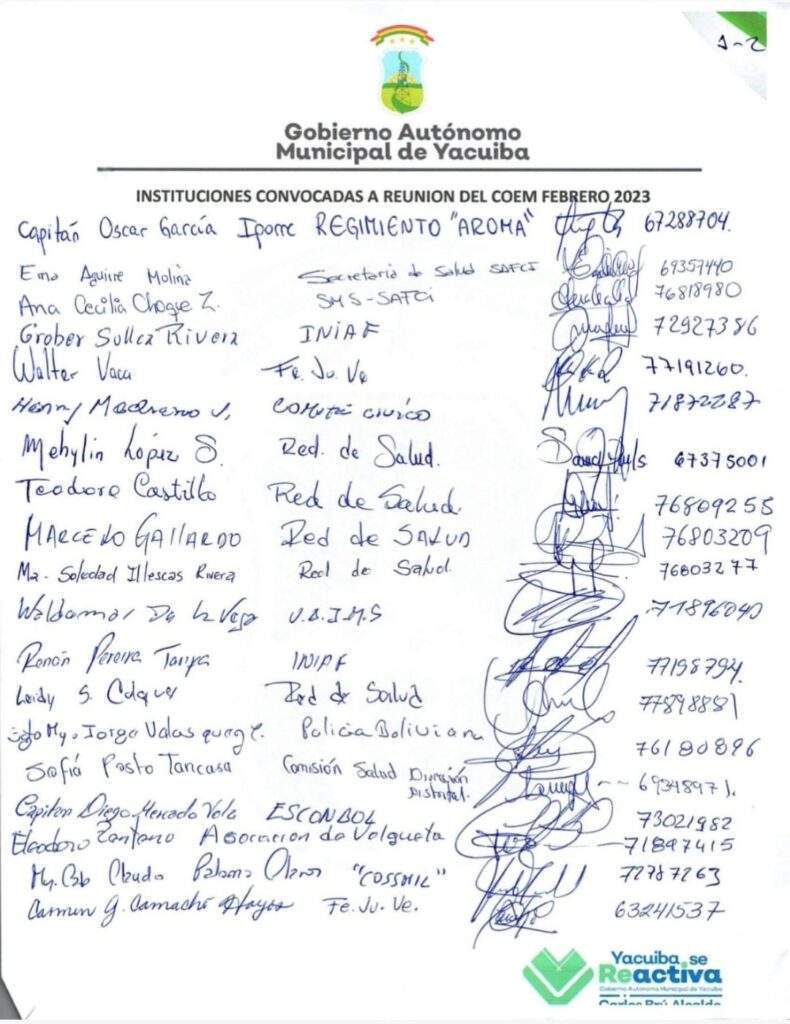 1-2
Gobierno Autónomo
Municipal de Yacuiba
INSTITUCIONES CONVOCADAS A REUNION DEL COEM FEBRERO 2023
Capitán Oscar García Iporre REGIMIENTO "AROMA" 67288704.
Ema Aguirre Molina Secretaria de Salud SAFCI 69357440
Ana Cecilia Choque Z. SMS-SAFCi 76818980
Grober Sullca Rivera INIAF 72927386
Walter Vaca Fe. Ju. Ve 77191260.
Henry COMITÉ CIVICO 71872287
Mehylin López S. Red. de Salud. 67375001
Teodora Castillo Red de Salud. 76809255
MARCELO GALLARDO Red de SALUD 76803209
Ma. Soledad Illescas Rivera Red de Salud. 76803277
Waldamar De la Vega 71896040
Renán Pereira INIAF 77198794.
Leidy S. Colque Red de Salud 77898881
My. Jorge Velasquez Policia Boliviana 76180896
Sofiá Pasto Tancara Comisión Salud 6934897
Distrital.
Capitan Diego Mercado 73021982
Eleodoro Zenteno Asociacion de Volqueta 71897415
"COSSMIL" 72787263
Carmen G. Camacho Hoyos Fe. Ju. Ve. 63241537
Yacuiba se
Reactiva
Gobierno Autónomo Municipal de Yacuiba
Carlos Brú Alcalde